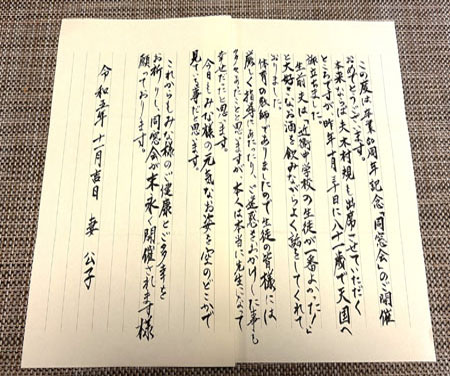 この度は卒業60周年記念「同窓会」のご開催
おめでとうございます。
本来ならば夫木村規も出席させていただく
ところですが昨年 月 日に八十一歳で天国へ
旅立ちました。
生前夫は「近衛中学校の生徒が一番よかったなぁ」
と大好きなお酒を飲みながらよく話をしてくれて
おりました。
体育の教師でありましたので生徒の皆様には
厳しく指導にあたったり、ご迷惑をおかけした事も
多々あったことと思いますが本人は本当に先生になって
幸せだったと思います。
今日もみな様の元気なお姿を空のどこかで
見ている事と思います。
これからもみな様のご健康とご多幸を
お祈りし、同窓会が末永く開催されます様
願っております。
令和五年 十一月吉日 妻 公子